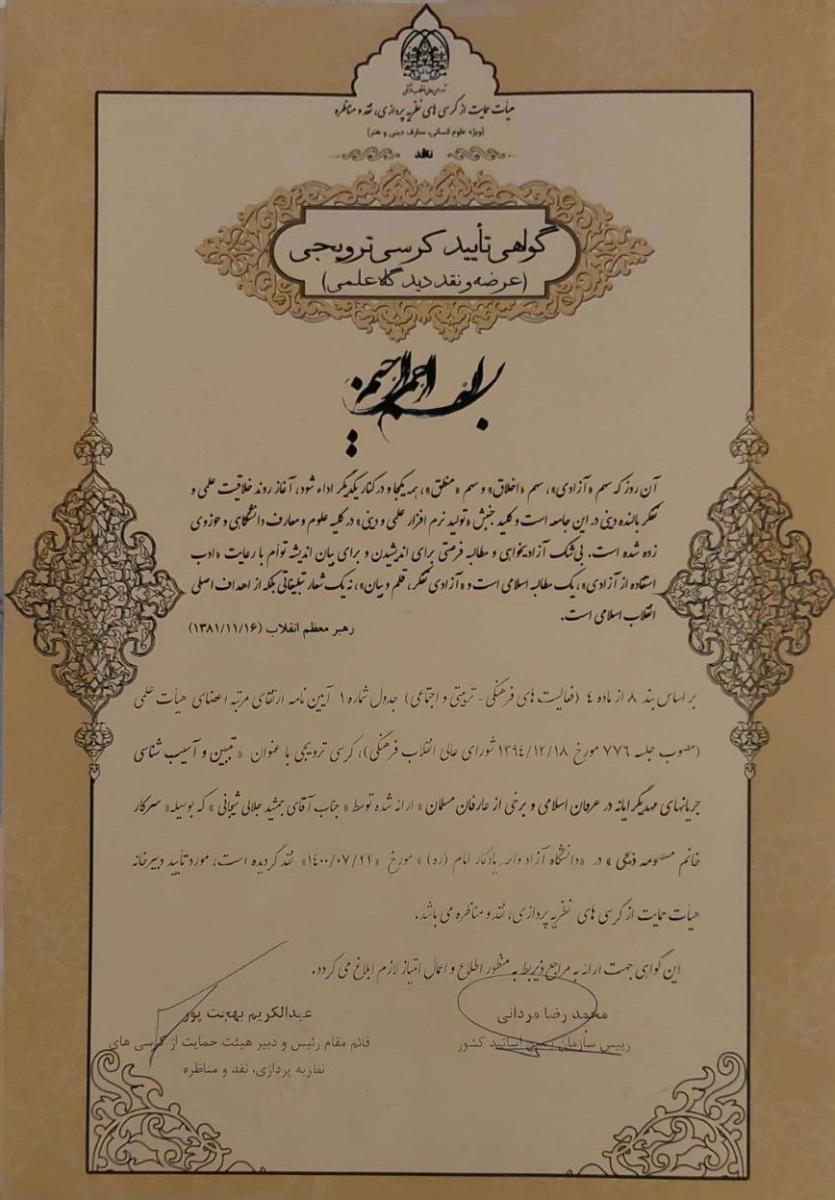 شورای عالی انقلاب فرهنگی
هیأت حمایت از کرسی های نظریه پردازی، نقد و مناظره
(ویژه علوم انسانی، معارف دینی و هنر)
ناقد
گواهی تأیید کرسی ترویجی
(عرضه و نقد دیدگاه علمی)
بسم الله الرحمن الرحیم
آن روز که سهم «آزادی»، سهم «اخلاق» و سهم «منطق»، همه یکجا و در کنار یکدیگر اداء شود، آغاز روند خلاقیت علمی و
تفکر بالنده دینی در این جامعه است و کلید جنبش «تولید نرم افزار علمی و دینی» در کلیه علوم و معارف دانشگاهی و حوزوی
زده شده است. بی شک آزادیخواهی و مطالبه فرصتی برای اندیشیدن و برای بیان اندیشه توأم با رعایت «ادب
استفاده از آزادی»، یک مطالبه اسلامی است و «آزادی تفکر، قلم و بیان»، نه یک شعار تبلیغاتی بلکه از اهداف اصلی
انقلاب اسلامی است.
رهبر معظم انقلاب (۱۳۸۱/۱۱/۱۶)
بر اساس بند ۸ از ماده ٤ (فعالیت های فرهنگی- تربیتی و اجتماعی) جدول شماره ۱ آیین نامه ارتقای مرتبه اعضای هیأت علمی
(مصوب جلسه ۷۷۶ مورخ ۱۳۹٤/۱۲/۱۸ شورای عالی انقلاب فرهنگی)، کرسی ترویجی با عنوان « تبیین و آسیب شناسی
جریانهای مهدیگرایانه در عرفان اسلامی و برخی از عارفان مسلمان » ارائه شده توسط « جناب آقای جمشید جلالی شیجانی » که بوسیله « سرکار
خانم معصومه ذبیحی » در «دانشگاه آزاد واحد یادگار امام (ره) » مورخ «۱٤۰۰/۰۷/۲۱» نقد گردیده است، مورد تأیید دبیرخانه
هیأت حمایت از کرسی های نظریه پردازی، نقد و مناظره می باشد.
این گواهی جهت ارائه به مراجع ذیربط به منظور اطلاع و اعمال امتیاز لازم ابلاغ می گردد.
محمد رضا مردانی
رییس سازمان بسیج اساتید کشور
عبدالکریم بهجت پور
قائم مقام رئیس و دبیر هیئت حمایت از کرسی های
نظریه پردازی، نقد و مناظره